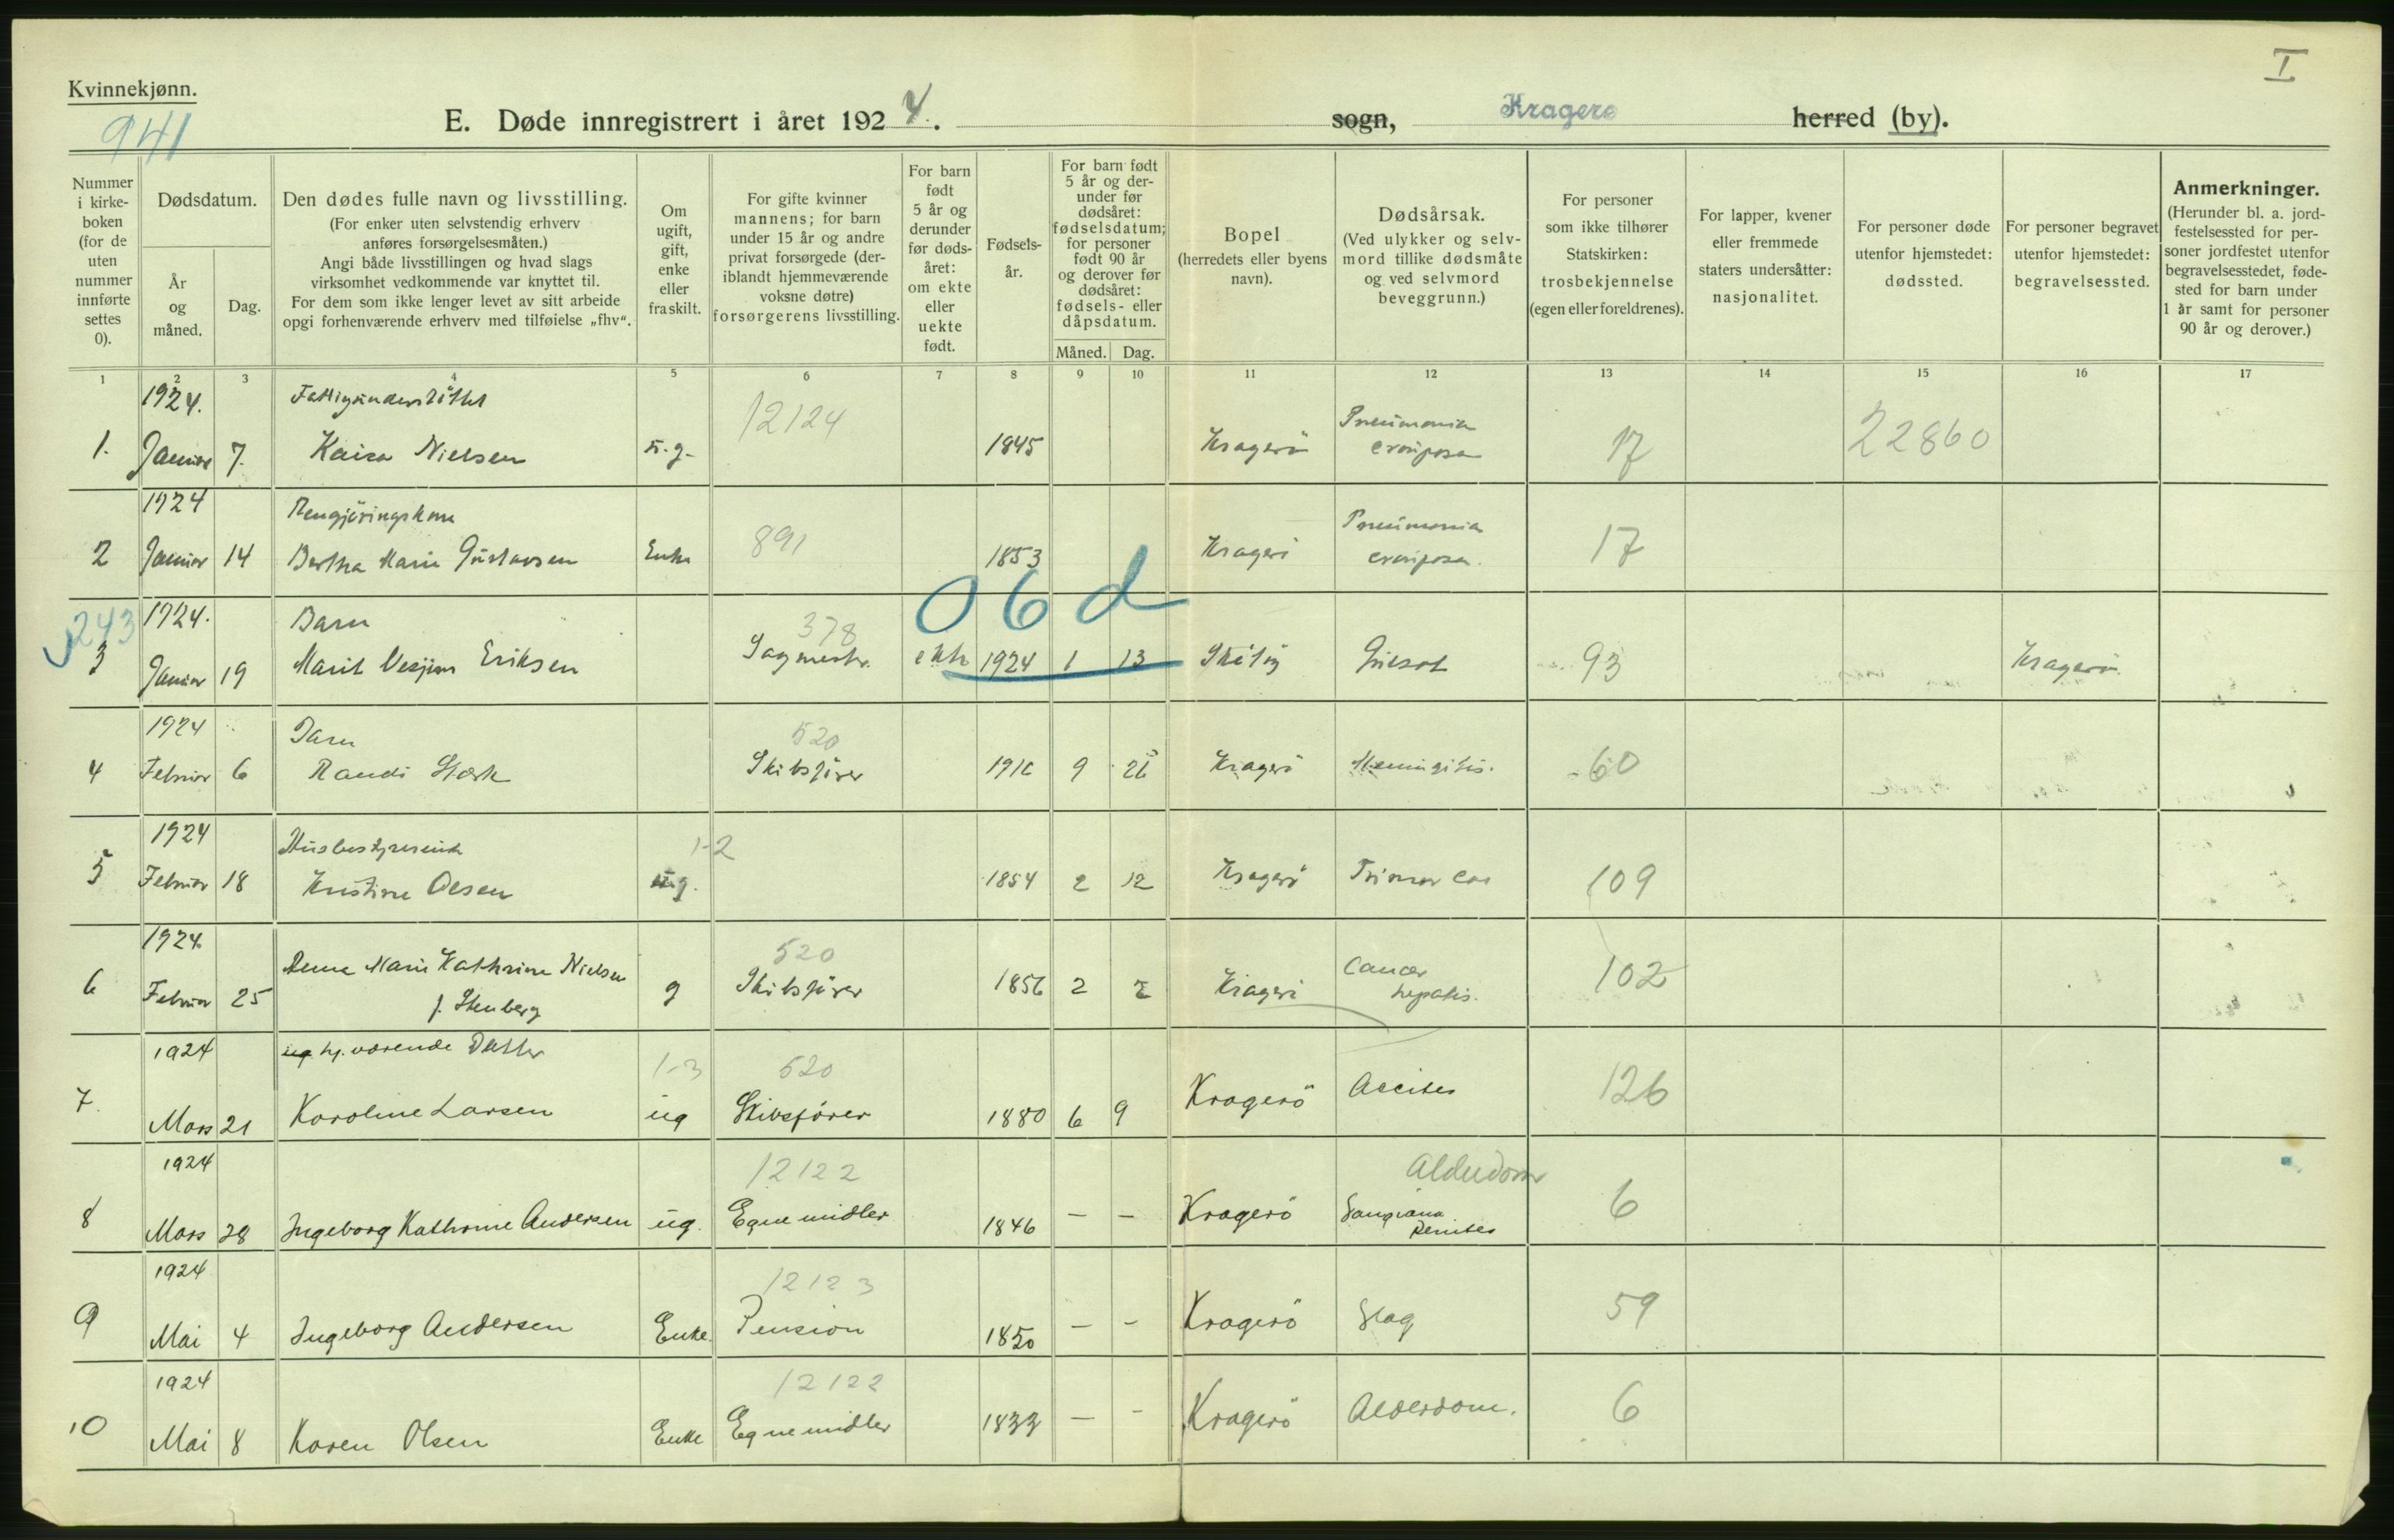 I
Kvinnekjønn.
941
E. Døde innregistrert i året 1924. sogn, Kragerø herred (by).
Nummer i kirke-boken (for de uten nummer innførte settes 0).
Dødsdatum.
År og måned.
Dag.
Den dødes fulle navn og livsstilling.
(For enker uten selvstendig erhverv anføres forsørgelsesmåten.)
Angi både livsstillingen og hvad slags virksomhet vedkommende var knyttet til.
For dem som ikke lenger levet av sitt arbeide opgi forhenværende erhverv med tilføielse „fhv“.
Om ugift, gift, enke eller fraskilt.
For gifte kvinner mannens; for barn under 15 år og andre privat forsørgede (der-iblandt hjemmeværende voksne døtre) forsørgerens livsstilling.
For barn født 5 år og derunder før døds-året: om ekte eller uekte født.
Fødsels-år.
For barn født 5 år og der-under før dødsåret: fødselsdatum; for personer født 90 år og derover før dødsåret: fødsels- eller dåpsdatum.
Måned. Dag.
Bopel (herredets eller byens navn).
Dødsårsak.
(Ved ulykker og selv-mord tillike dødsmåte og ved selvmord beveggrunn.)
For personer som ikke tilhører Statskirken: trosbekjennelse (egen eller foreldrenes).
For lapper, kvener eller fremmede staters undersåtter: nasjonalitet.
For personer døde utenfor hjemstedet: dødssted.
For personer begravet utenfor hjemstedet: begravelsessted.
Anmerkninger.
(Herunder bl. a. jord-festelsessted for per-soner jordfestet utenfor begravelsesstedet, føde-sted for barn under 1 år samt for personer 90 år og derover.)
1 2 3 4 5 6 7 8 9 10 11 12 13 14 15 16 17
1924. Fattigunderstöttet 12124 Pneumonia
1. Januar 7. Kaisa Nielsen ü.g. 1845 Kragerö crouposa 17 22860
1924 Rengjöringskone 891 Pneumonia
2 Januar 14 Bertha Marie Gustavsen Enke 1853 Kragerö crouposa. 17
06d
243 1924. Barn 378
3 Januar 19 Marit Eriksen Sagmestr. ekte 1924 1 13 Skåtöy Gulsot 93 Kragerö
1924 Barn 520
4 Februar 6 Randi Stærk Skibsförer 1910 9 Kragerö Meningitis. 60
1924 Husbestyrerinde 1-2
5 Februar 18 Kristine Olsen ü.g. 1854 2 12 Kragerö Tumor 109
1924 Marie Kathrine Nielsen 520 Cancer
6 Februar 25 f. Stenberg g Skibsförer 1856 2 2 Kragerö hepatis. 102
1924 ug. hj. værende Datter 1-3 520
7. Mars 21 Karoline Larsen üg Skibsförer 1880 6 9 Kragerö Ascites 126
1924 12122 Alderdom
8 Mars 28 Ingeborg Kathrine Andersen üg. Egne midler 1846 — — Kragerö Gangræna senilis 6
1924 12123
9 Mai 4 Ingeborg Andersen Enke. Pension 1850 — - Kragerö Slag 59
1924 12122
10 Mai 8 Karen Olsen Enke Egne midler 1833 — - Kragerö Alderdom. 6